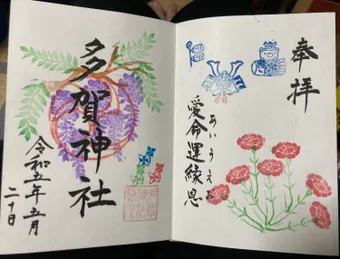 奉拝
あいうえお
愛命運縁恩
多賀神社
令和五年五月
二十日